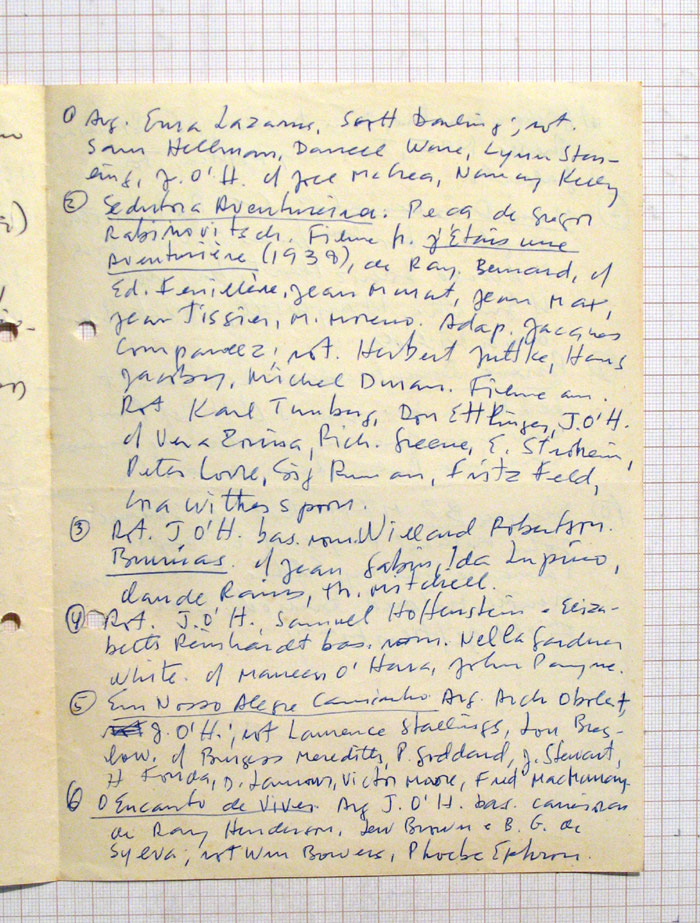 ① Arg. Erna Lazarus, Scott Darling; rot.
Sam Hellman, Darrell Ware, Lynn Star-
ling, J. O'H. c/ Joel McCrea, Nancy Kelly
② Sedutora Aventureira. Peça de Gregor
Rabinovitsch. Filme fr. J'Étais une
Aventurière (1938), de Ray. Bernard, c/
Ed. Feuillère, Jean Murat, Jean Max,
Jean Tissier, M. Moreno. Adap. Jacques
Companeez; rot. Herbert Juttke, Hans
Jacoby, Michel Duran. Filme am.
Rot Karl Tunberg, Don Ettlinger, J.O'H.
c/ Vera Zorina, Rich. Greene, E. Stroheim,
Peter Lorre, Sig Ruman, Fritz Feld,
Cora Witherspoon.
③ Rot. J O'H. bas. rom. Willard Robertson.
Brumas. c/ Jean Gabin, Ida Lupino,
Claude Rains, Th. Mitchell.
④ Rot. J.O'H., Samuel Hoffenstein e Eliza-
beth Reinhardt bas. rom. Nella Gardner
White. c/ Maureen O'Hara, John Payne.
⑤ Em Nosso Alegre Caminho. Arg. Arch Oboler,
J. O'H.; rot Laurence Stallings, Lou Bres-
low. c/ Burgess Meredith, P. Goddard, J. Stewart,
H Fonda, D. Lamour, Victor Moore, Fred MacMurray
⑥ O Encanto de Viver. Arg J.O'H. bas. canções
de Ray Henderson, Lew Brown e B. G. de
Sylva; rot Wm Bowers, Phoebe Ephron.